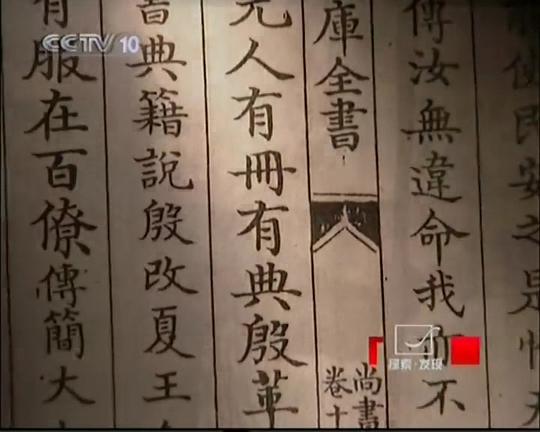 CCTV 10
使民安之是惟
傳汝無違命我亦不
庫全書
尚書
卷十
先人有冊有典殷革
書典籍說殷改夏王
有服在百僚傳簡大
探索·发现